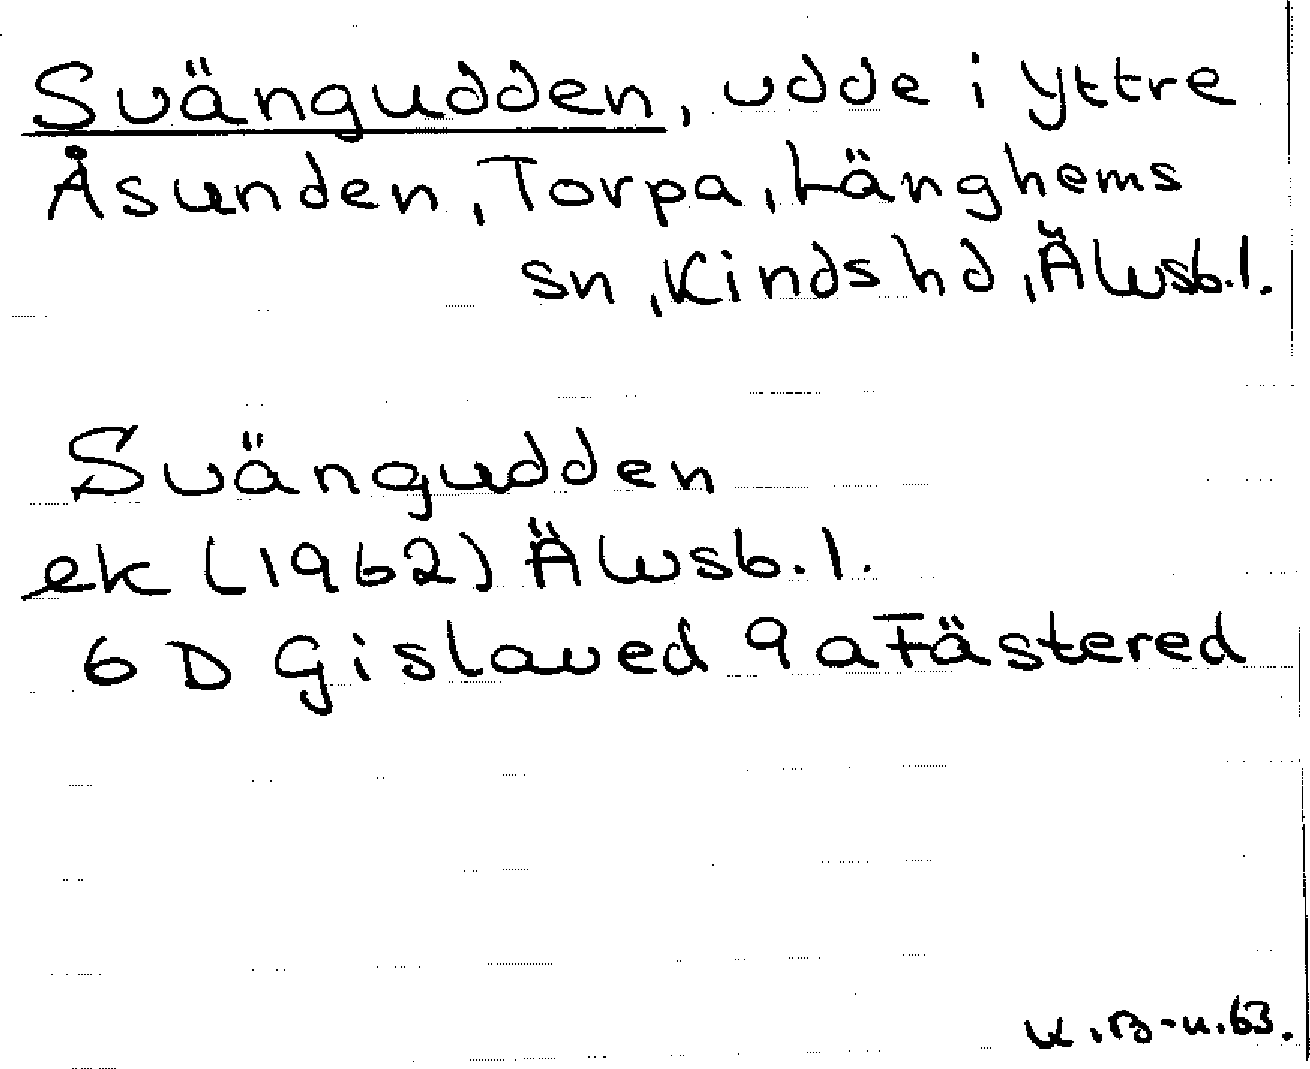 Svängudden, udde i Yttre
Åsunden, Torpa, Länghems
sn, Kinds hd, Älvsb.l.
Svängudden
ek (1962) Älvsb.l.
6 D Gislaved 9 a Fästered
K.B-n.63.